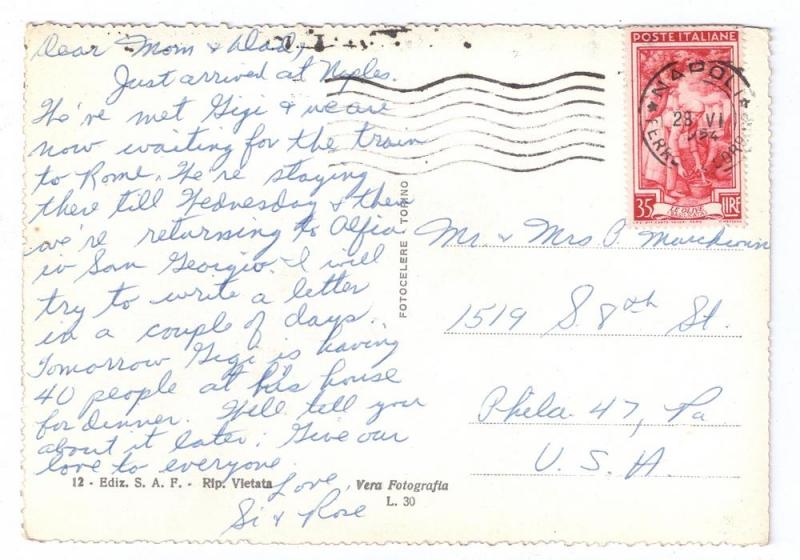 Dear Mom & Dad,
Just arrived at Naples.
We've met Gigi & we are
now waiting for the train
to Rome. We're staying
there till Wednesday & then
we're returning to Alfia
in San Georgio. I will
try to write a letter
in a couple of days.
Tomorrow Gigi is having
40 people at his house
for dinner. Will tell you
about it later. Give our
love to everyone.
Love,
Si & Rose
12 - Ediz. S. A. F. - Rip. Vietata
Vera Fotografia
L. 30
FOTOCELERE TORINO
POSTE ITALIANE
NAPOLI
28 VI
1954
35 LIRE
Mr. & Mrs. P.
1519 S. 8th St.
Phila 47, Pa
U. S. A.